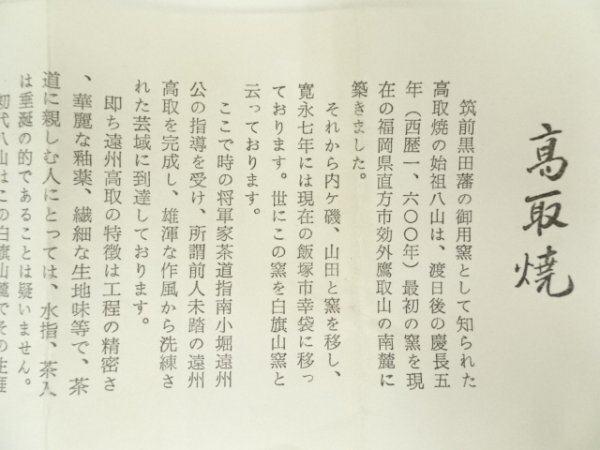 高取焼
筑前黒田藩の御用窯として知られた
高取焼の始祖八山は、渡日後の慶長五
年（西歴一、六〇〇年）最初の窯を現
在の福岡県直方市効外鷹取山の南麓に
築きました。
それから内ケ磯、山田と窯を移し、
寛永七年には現在の飯塚市幸袋に移っ
ております。世にこの窯を白旗山窯と
云っております。
ここで時の将軍家茶道指南小堀遠州
公の指導を受け、所謂前人未踏の遠州
高取を完成し、雄渾な作風から洗練さ
れた芸域に到達しております。
即ち遠州高取の特徴は工程の精密さ
、華麗な釉薬、繊細な生地味等で、茶
道に親しむ人にとっては、水指、茶入
は垂涎の的であることは疑いません。
初代八山はこの白旗山麓でその生涯